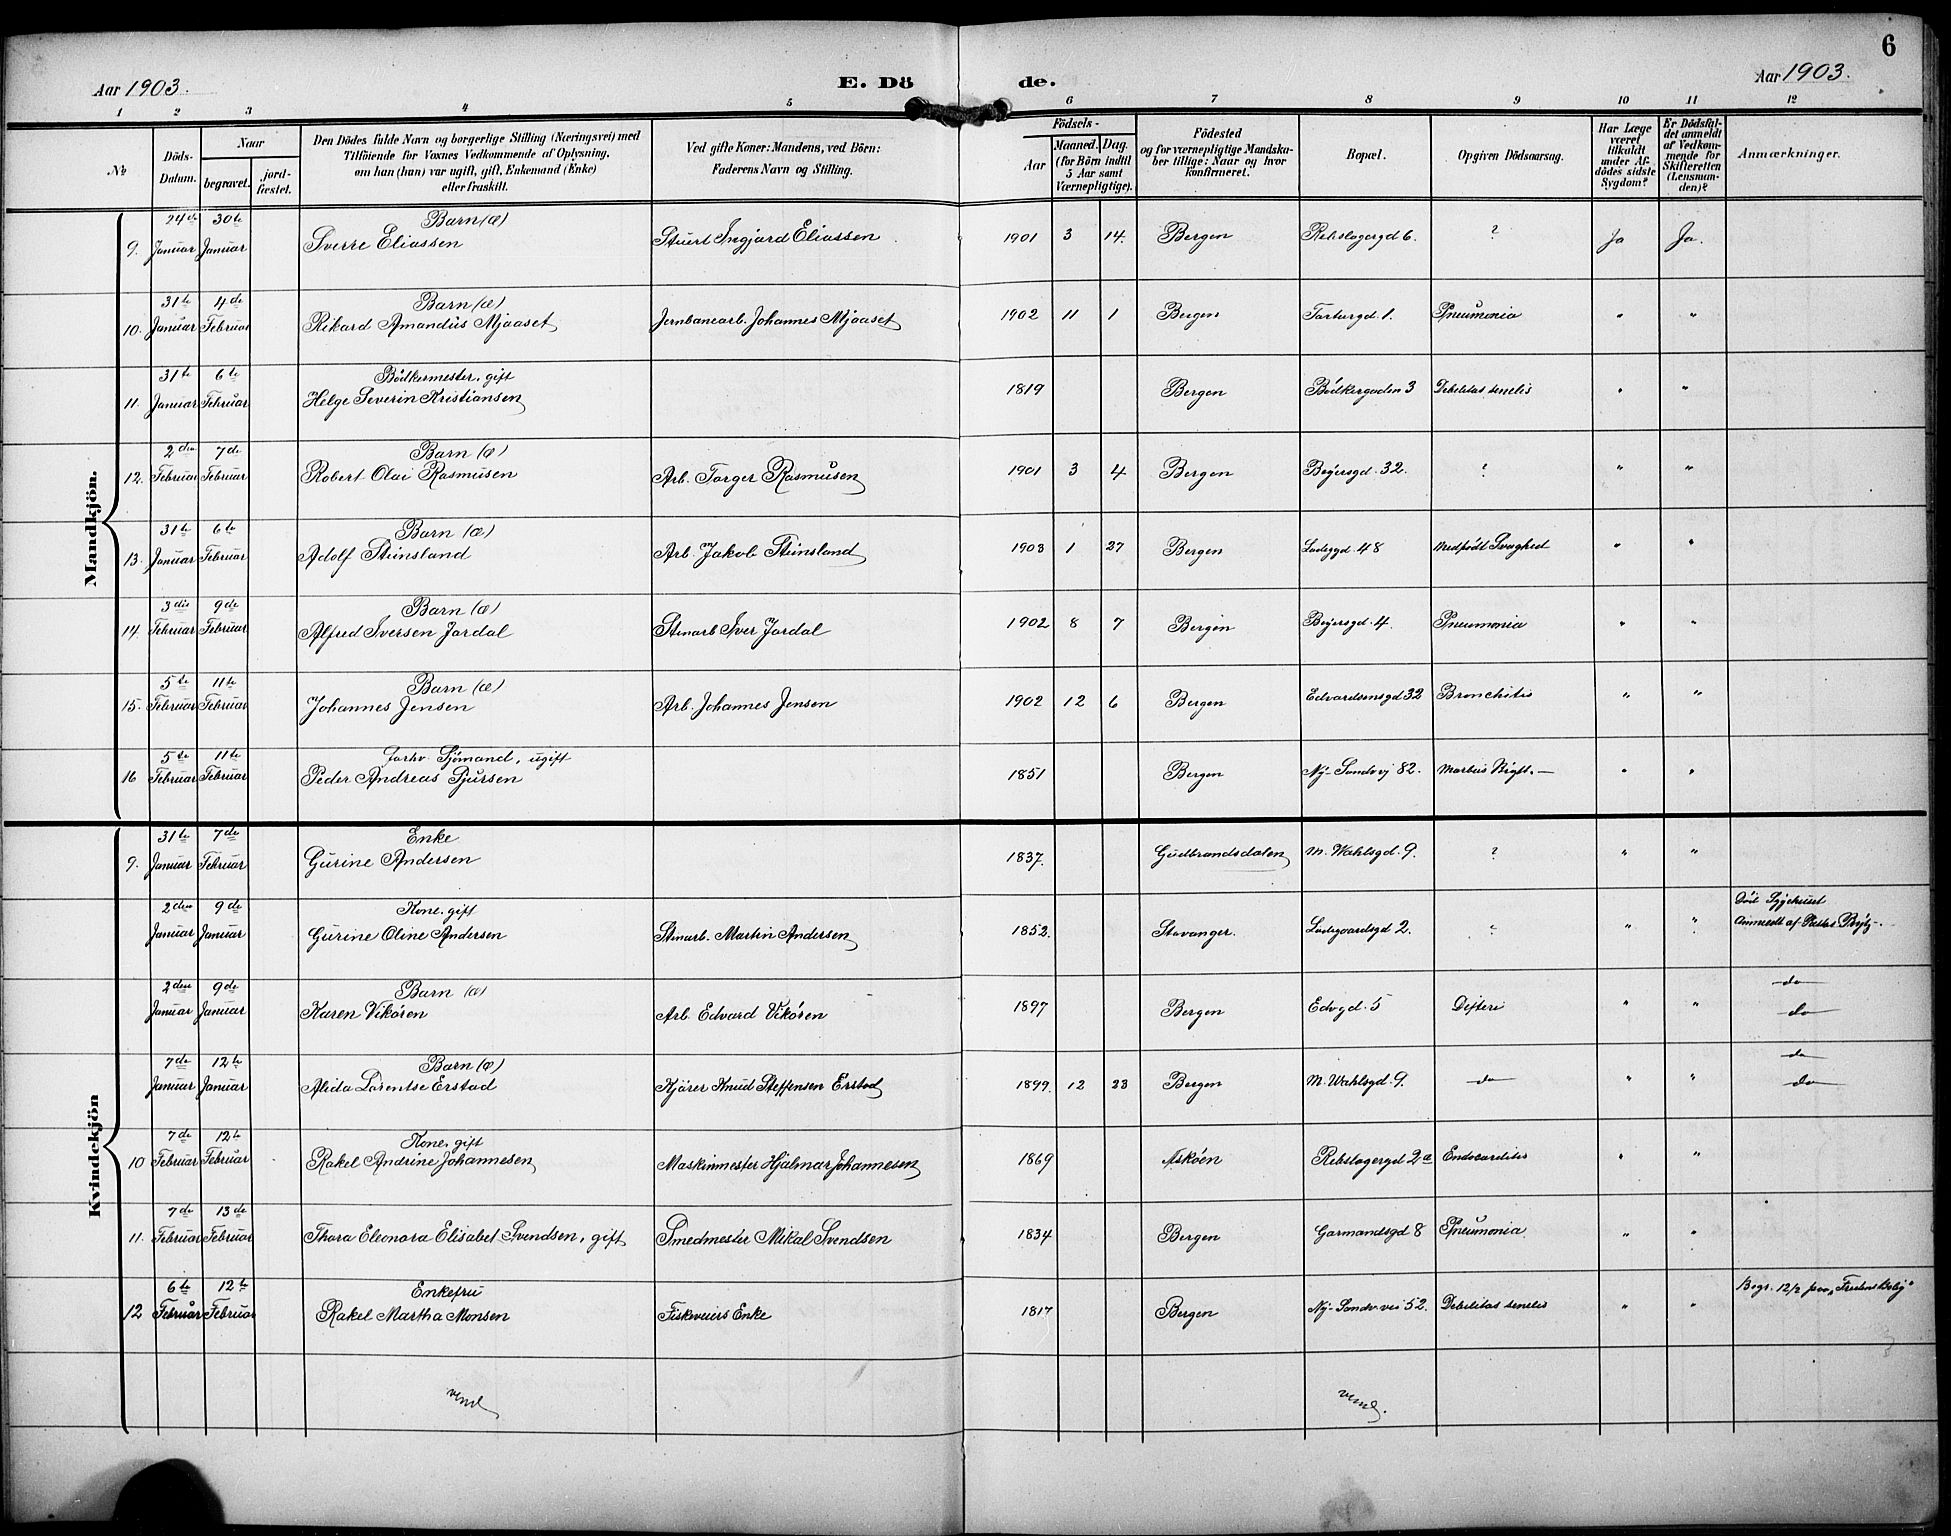 6
Aar 1903.
E. Dö de.
Aar 1903.
1 2 3 4 5 6 7 8 9 10 11 12
№
Döds-
Datum.
Naar
begravet.
jord-
fæstet.
Den Dödes fulde Navn og borgerlige Stilling (Næringsvei) med
Tilföiende for Voxnes Vedkommende af Oplysning,
om han (hun) var ugift, gift, Enkemand (Enke)
eller fraskilt.
Ved gifte Koner: Mandens, ved Börn:
Faderens Navn og Stilling.
Födsels-
Aar
Maaned. Dag.
(for Börn indtil
5 Aar samt
Værnepligtige).
Födested
og for værnepligtige Mandska-
ber tillige: Naar og hvor
konfirmeret.
Bopæl.
Opgiven Dödsaarsag.
Har Læge
været
tilkaldt
under Af-
dödes sidste
Sygdom?
Er Dödsfal-
det anmeldt
af Vedkom-
mende for
Skifteretten
(Lensman-
den)?
Anmærkninger.
Mandkjön.
24de 30te Barn (æ)
9. Januar Januar Sverre Eliassen Stuert Ingjard Eliassen 1901 3 14. Bergen Rebslagergd 6. ? Ja Ja.
31te 4de Barn (æ)
10. Januar Februar Rikard Amandus Mjaaset Jernbanearb. Johannes Mjaaset 1902 11 1 Bergen Tartargd. 1. Pneumonia " "
31te 6te Bödkermester, gift
11. Januar Februar Helge Severin Kristiansen 1819 Bergen Bödkergaden 3 Debilitas senelis " "
2den 7de Barn (æ)
12. Februar Februar Robert Olai Rasmusen Arb. Torger Rasmusen 1901 3 4 Bergen Beyersgd. 32. ? " "
31te 6te Barn (æ)
13. Januar Februar Adolf Stensland Arb. Jakob Stensland 1903 1 27 Bergen Ladeggd. 48 Medfödt Svaghed " "
3die 9de Barn (æ)
14. Februar Februar Alfred Iversen Jordal Stenarb Iver Jordal 1902 8 7 Bergen Beyersgd. 4. Pneumonia " "
5te 11te Barn (æ)
15. Februar Februar Johannes Jensen Arb. Johannes Jensen 1902 12 6 Bergen Edvardsensgd 32 Bronchitis " "
5te 11te Forhv. Sjömand, ugift
16 Februar Februar Peder Andreas Sjursen 1851 Bergen Ny-Sandvej 82. Morbus Bright. " "
Kvindekjön
31te 7de Enke
9. Januar Februar Gurine Andersen 1837. Gudbrandsdalen M. Wahlsgd. 9. ? " "
2den 9de Kone. gift Död Sygehuset
Januar Januar Gurine Oline Andersen Stenarb. Martin Andersen 1852. Stavanger. Ladegaardsgd 2. " " Anmeldt af
2den 9de Barn (æ) do
Januar Januar Karen Vikören Arb. Edvard Vikören 1897 Bergen Edvgd. 5 Difteri " " do
7de 12te Barn (æ) do
Januar Januar Alida Lorentse Erstad Kjörer Knud Steffensen Erstad 1899. 12 23 Bergen M. Wahlsgd. 9. do " " do
7de 12te Kone, gift
10 Februar Februar Rakel Andrine Johannesen Maskinmester Hjalmar Johannesen 1869 Asköen Rebslagergd 2a Endocarditis " "
7de 13de
11. Februar Februar Thora Eleonora Elisabet Svendsen, gift Smedmester Mikal Svendsen 1834 Bergen Garmandsgd 8 Pneumonia " "
6te 12te Enkefru Begr. 12/2 paa
12 Februar Februar Rakel Martha Monsen Fiskeveiers Enke 1817 Bergen Ny-Sandv-vei 52. Debilitas senelis " "
vend vend.